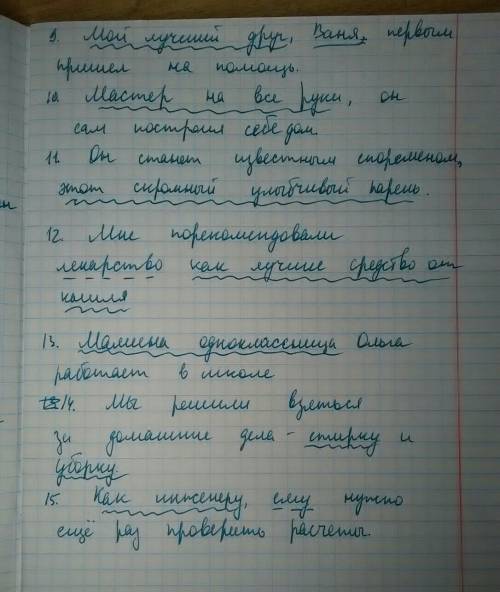 9. Мой лучший друг, Ваня, первым
пришел на помощь.
10. Мастер на все руки, он
сам построил себе дом.
11. Он станет известным спортсменом,
этот скромный улыбчивый парень.
12. Мне порекомендовали
лекарство как лучшее средство от
кашля
13. Мамина одноклассница Ольга
работает в школе
14. Мы решили взяться
за домашние дела - стирку и
уборку.
15. Как инженеру, ему нужно
ещё раз проверить расчеты.